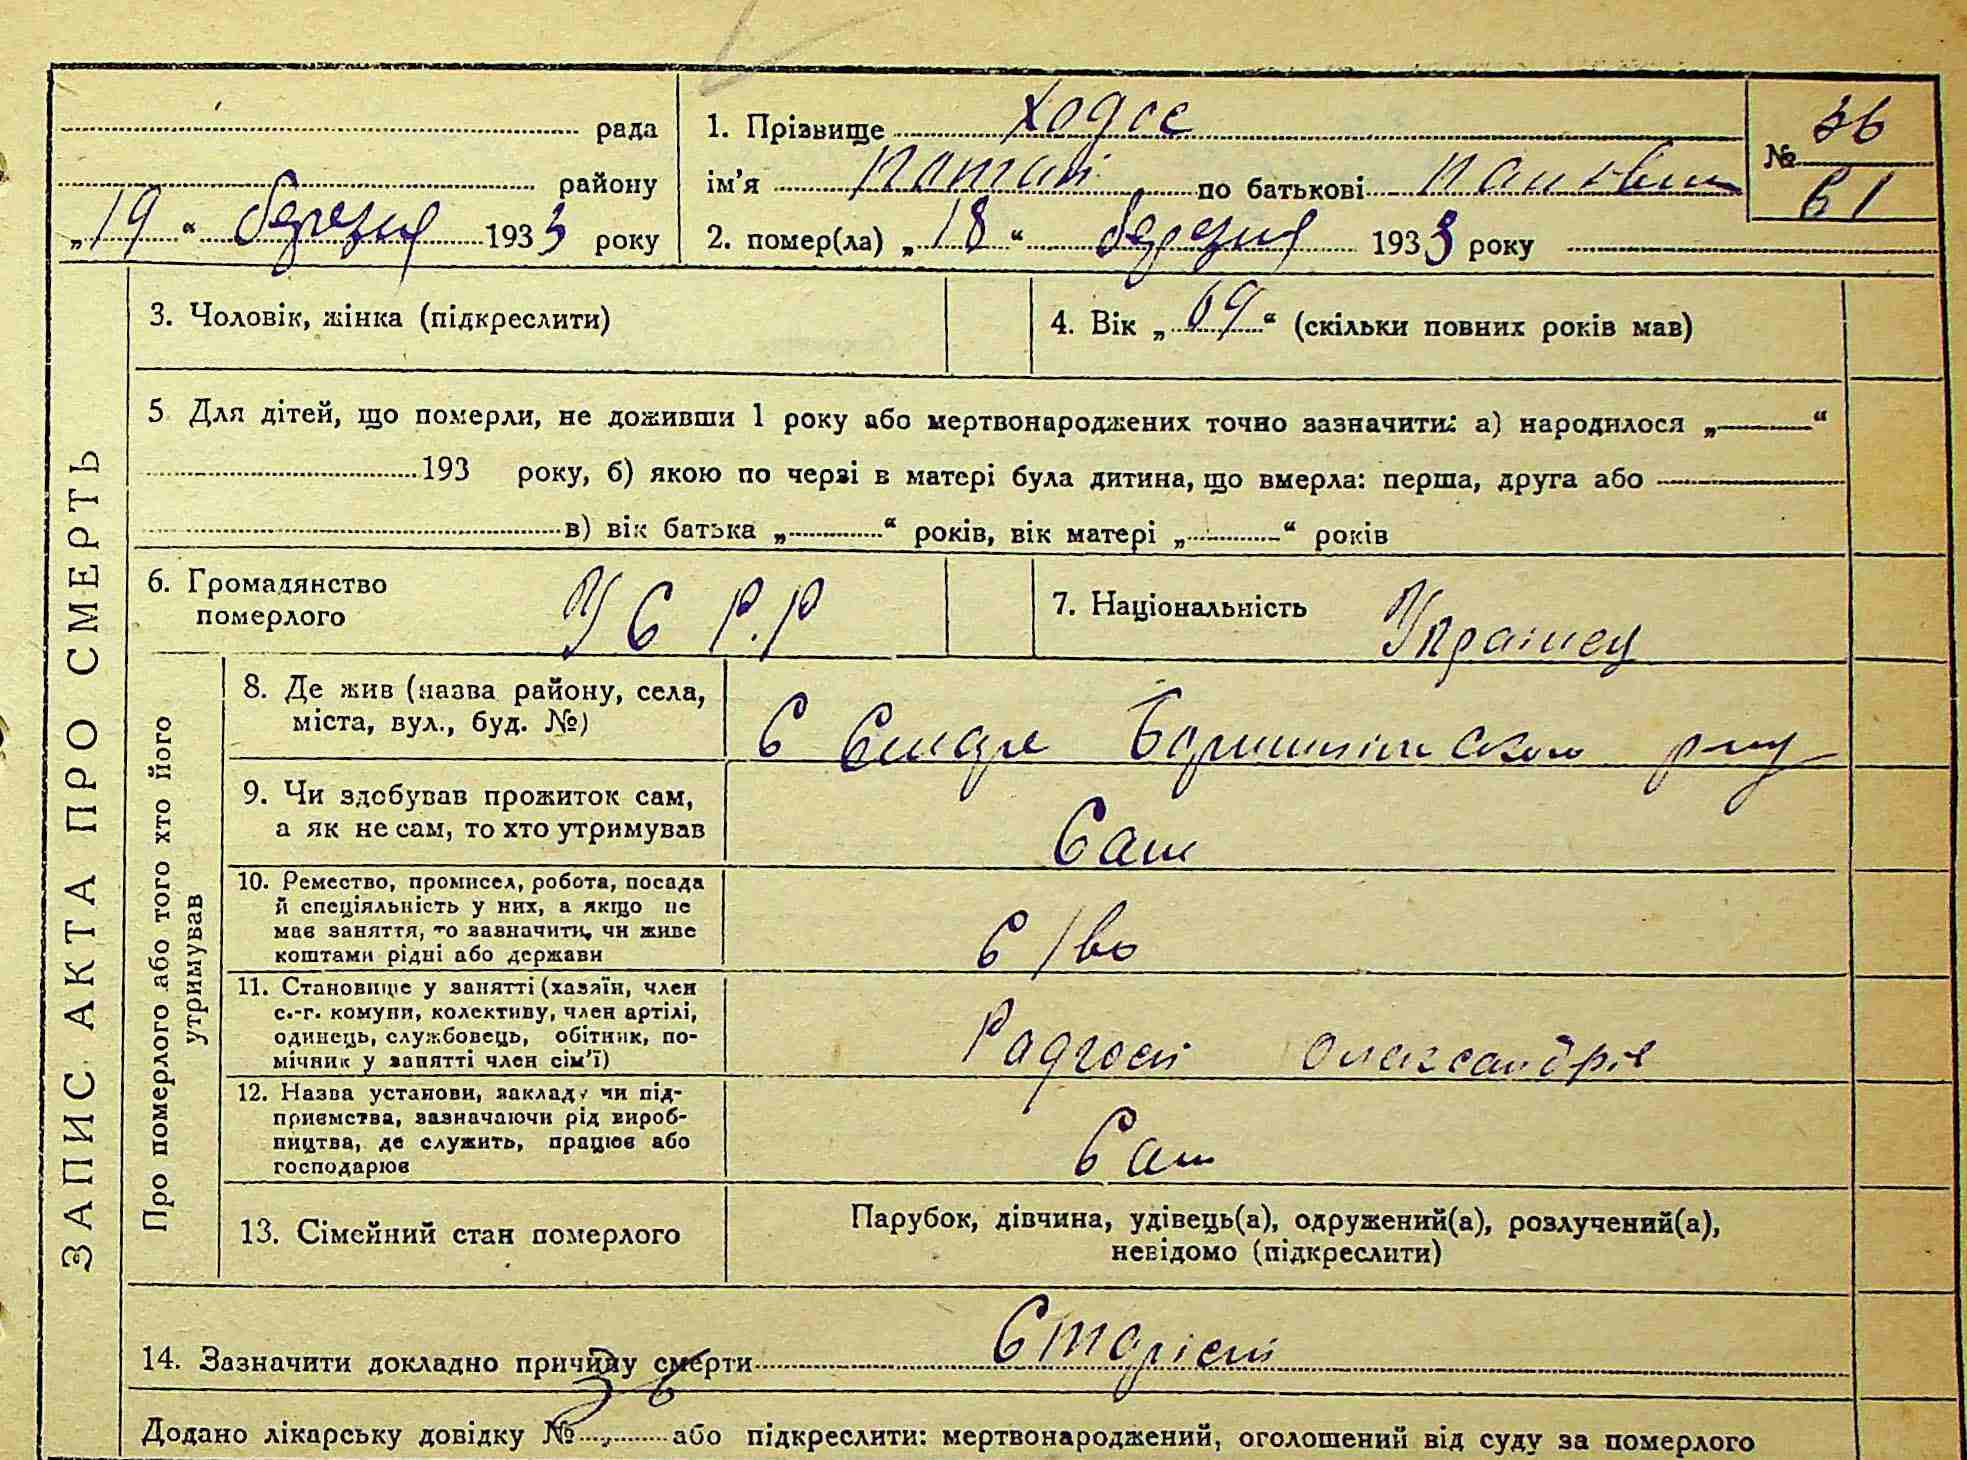 ЗАПИС АКТА ПРО СМЕРТЬ
рада
району
„19“ березня 1933 року
1. Прізвище Ходос
ім'я по батькові
2. помер(ла) „18“ березня 1933 року
№ 36
61
3. Чоловік, жінка (підкреслити)
4. Вік „69“ (скільки повних років мав)
5 Для дітей, що померли, не доживши 1 року або мертвонароджених точно зазначити: а) народилося „ “
193 року, б) якою по черзі в матері була дитина, що вмерла: перша, друга або
в) вік батька „ “ років, вік матері „ “ років
6. Громадянство
померлого
УСРР
7. Національність Украінец
Про померлого або того хто його
утримував
8. Де жив (назва району, села,
міста, вул., буд. №)
С
9. Чи здобував прожиток сам,
а як не сам, то хто утримував
Сам
10. Ремество, промисел, робота, посада
й спеціяльність у них, а якщо не
має заняття, то зазначити, чи живе
коштами рідні або держави
С/во
11. Становище у занятті (хазяїн, член
с.-г. комуни, колективу, член артілі,
одинець, службовець, обітник, по-
мічник у занятті член сім'ї)
12. Назва установи, закладу чи під-
приємства, зазначаючи рід вироб-
ництва, де служить, працює або
господарює
Сам
13. Сімейний стан померлого
Парубок, дівчина, удівець(а), одружений(а), розлучений(а),
невідомо (підкреслити)
14. Зазначити докладно причину смерти
Додано лікарську довідку № або підкреслити: мертвонароджений, оголошений від суду за померлого